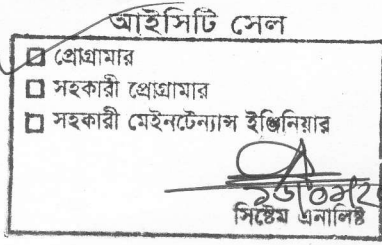 আইসিটি সেল
প্রোগ্রামার
সহকারী প্রোগ্রামার
সহকারী মেইনটেন্যান্স ইঞ্জিনিয়ার
সিস্টেম এনালিষ্ট